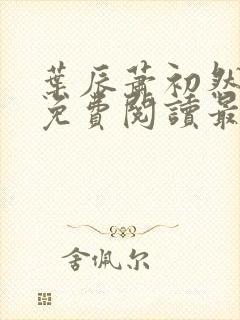 葉辰蕭初然
免費閱讀最
舍佩尔